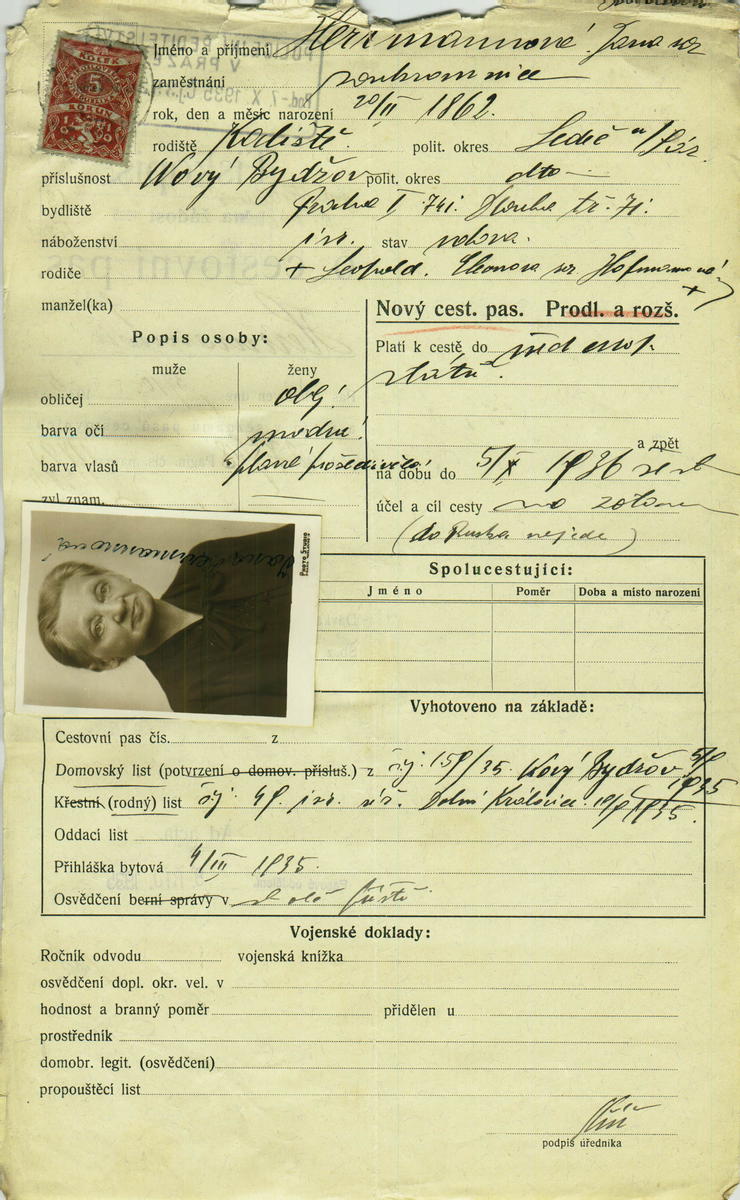 KOLEK
5
KORUN
POLICEJNÍ ŘEDITELSTVÍ
V PRAZE
Jméno a příjmení Herrmannová Jana
zaměstnání soukromnice
rok, den a měsíc narození 20/II 1862.
rodiště Kaliště. polit. okres Ledeč n/Sáz.
příslušnost Nový Bydžov polit. okres dto
bydliště Praha I 741. tř. 71.
náboženství isr. stav vdova.
rodiče + Leopold. Eleonora roz Hofmannová +
manžel(ka)
Nový cest. pas. Prodl. a rozš.
Popis osoby:
Platí k cestě do
států
muže ženy
obličej obl.
barva očí modré
barva vlasů plavé prošedivělé
a zpět
na dobu do 5/X 1936
zvl. znam.
účel a cíl cesty na zotav
(do Ruska nejede)
Jana Herrmannová
PHOTO STUDIO
Spolucestující:
Jméno Poměr Doba a místo narození
Vyhotoveno na základě:
Cestovní pas čís. z
Domovský list (potvrzení o domov. přísluš.) z čj. 159/35. Nový Bydžov 5/9 1935
Křestní (rodný) list čj 49. isr. Dolní Kralovice 1935.
Oddací list
Přihláška bytová 4/III 1935.
Osvědčení berní správy v
Vojenské doklady:
Ročník odvodu vojenská knížka
osvědčení dopl. okr. vel. v
hodnost a branný poměr přidělen u
prostředník
domobr. legit. (osvědčení)
propouštěcí list
podpis úředníka